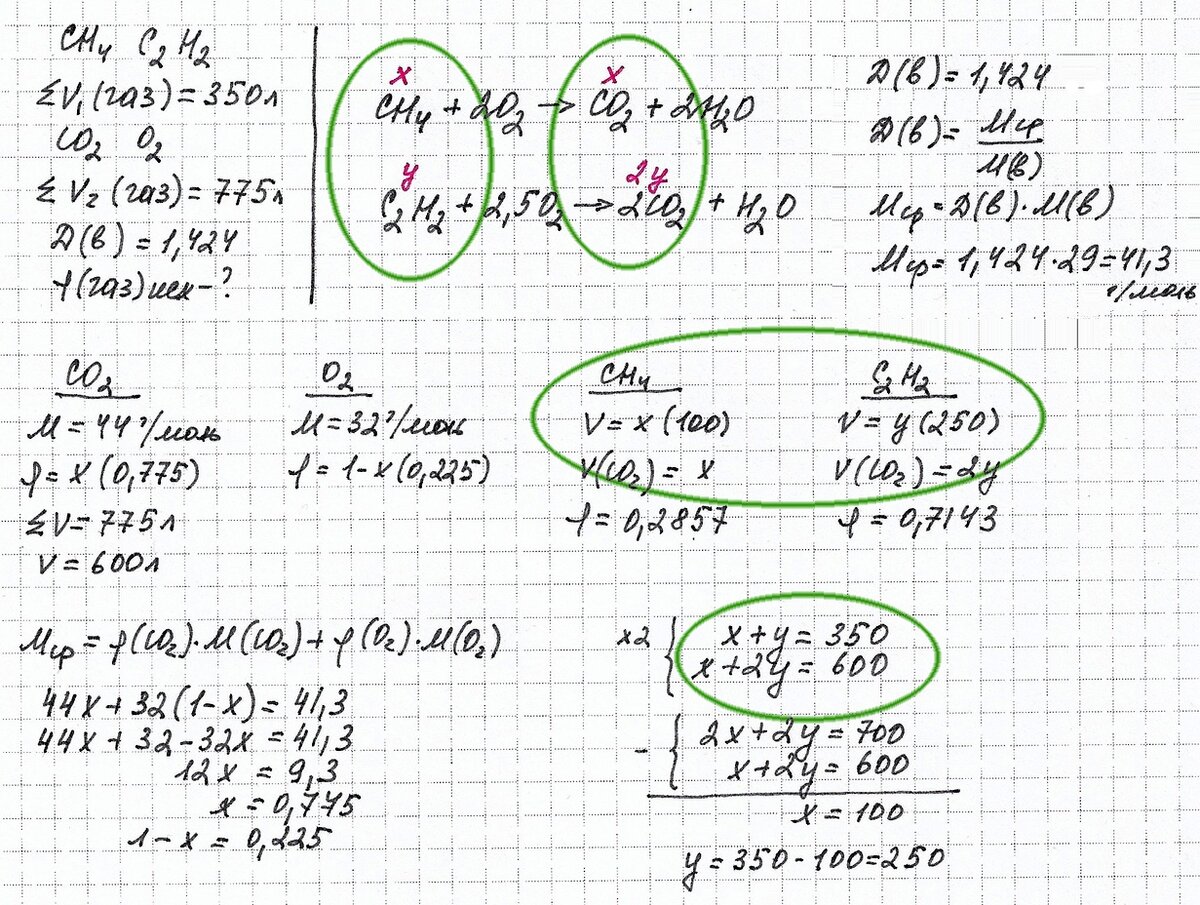 CH4 C2H2
ΣV1(газ) = 350л
CO2 O2
ΣV2(газ) = 775л
D(в) = 1,424
φ(газ)исх - ?
x x
CH4 + 2O2 → CO2 + 2H2O
y 2y
C2H2 + 2,5O2 → 2CO2 + H2O
D(в) = 1,424
D(в) = Mср / M(в)
Mср = D(в)·M(в)
Mср = 1,424·29 = 41,3
г/моль
CO2
M = 44 г/моль
φ = x (0,775)
ΣV = 775л
V = 600л
O2
M = 32 г/моль
φ = 1-x (0,225)
CH4
V = x (100)
V(CO2) = x
φ = 0,2857
C2H2
V = y (250)
V(CO2) = 2y
φ = 0,7143
Mср = φ(CO2)·M(CO2) + φ(O2)·M(O2)
44x + 32(1-x) = 41,3
44x + 32 - 32x = 41,3
12x = 9,3
x = 0,775
1 - x = 0,225
x2 { x + y = 350
x + 2y = 600
- { 2x + 2y = 700
x + 2y = 600
x = 100
y = 350 - 100 = 250